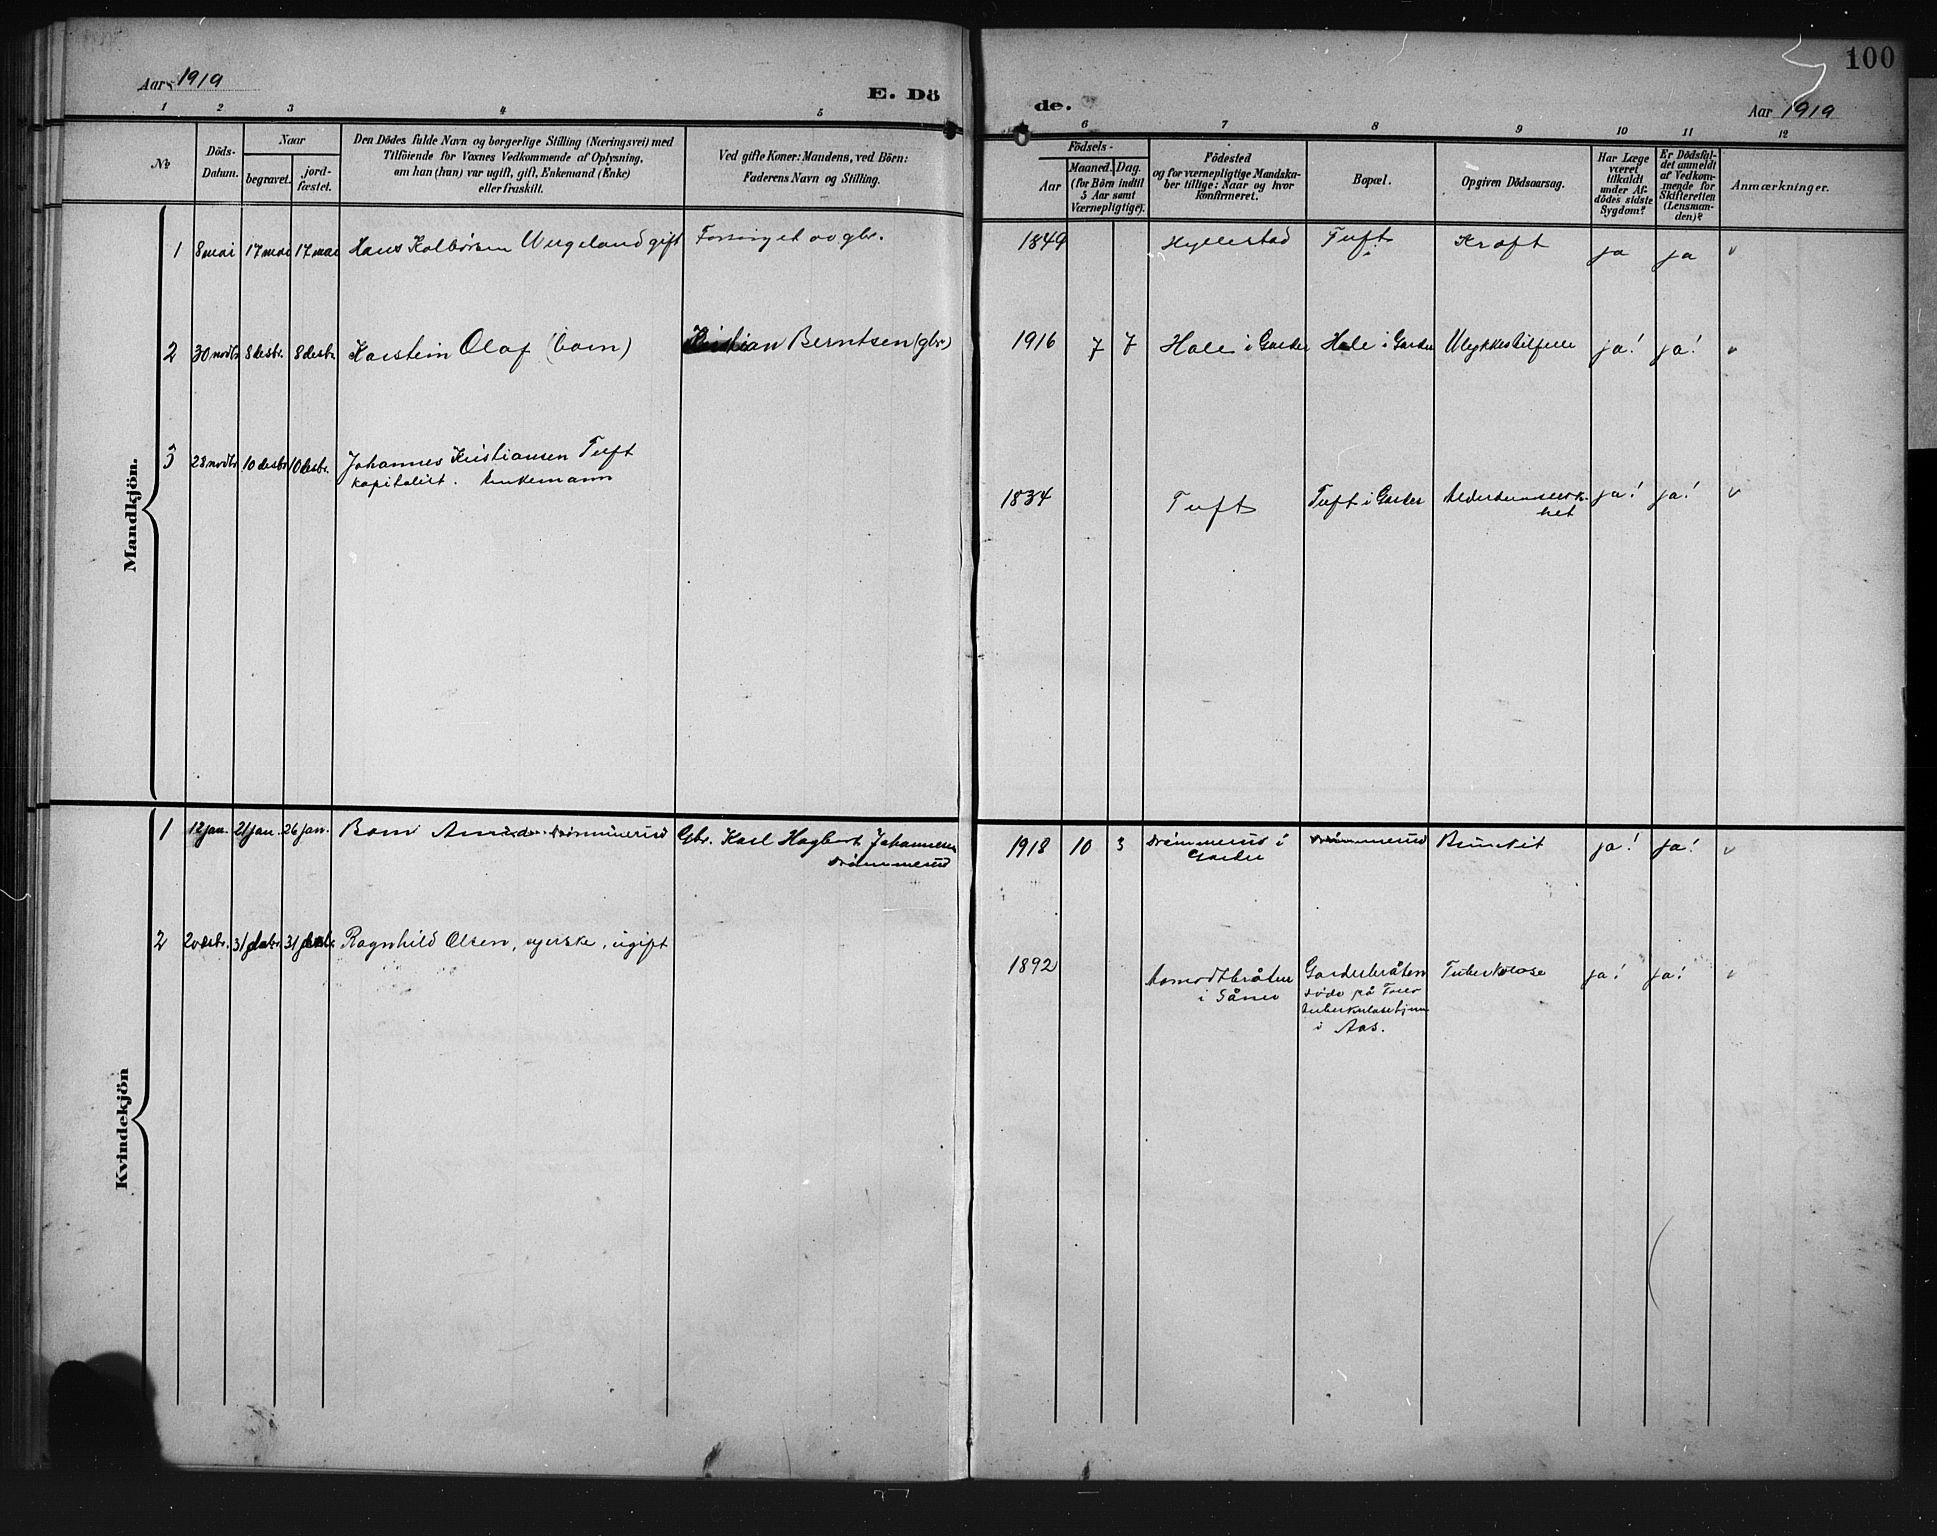 Aar 1919
E. Dö
1 2 3 4 5
No
Döds-Datum.
Naar
begravet.
jord-fæstet.
Den Dödes fulde Navn og borgerlige Stilling (Næringsvei) med
Tilföiende for Voxnes Vedkommende af Oplysning,
om han (hun) var ugift, gift, Enkemand (Enke)
eller fraskilt.
Ved gifte Koner: Mandens, ved Börn:
Faderens Navn og Stilling.
Mandkjön.
1 8 mai 17 mai 17 mai Hans Kolbørsen Uugeland gift Forsørget av gbr.
2 30 novbr. 8 desbr. 8 desbr. Karstein Olaf (barn) Kristian Berntsen (gbr)
3 23 novbr. 10 desbr. 10 desbr. Johannes Kristiansen Tuft
kapitalist. Enkemann
Kvindekjön
1 12 jan. 21 jan. 26 jan. Barn Drömmerud Gbr. Karl Hagbart Johannesen
Drömmerud
2 20 desbr. 31 desbr. 31 desbr. Ragnhild Olsen, syerske, ugift
100
de.
Aar 1919
6 7 8 9 10 11 12
Födsels-
Aar
Maaned. Dag.
(for Börn indtil
5 Aar samt
Værnepligtige).
Födested
og for værnepligtige Mandska-
ber tillige: Naar og hvor
konfirmeret.
Bopæl.
Opgiven Dödsaarsag.
Har Læge
været
tilkaldt
under Af-
dödes sidste
Sygdom?
Er Dödsfal-
det anmeldt
af Vedkom-
mende for
Skifteretten
(Lensman-
den)?
Anmærkninger.
1849 Hyllestad Tuft Kræft ja ja v
1916 7 7 Hale i Garder Hale i Garder Ulykkestilfelle ja! ja! v
1834 Tuft Tuft i Garder Alderdomssvak-
het ja! ja! v
1918 10 3 Drömmerud i
Garder Drömmerud Brunkit ja! ja! v
1892 Aamodtbråten
i Såner Garderbråten
døde på
tuberkulosehjem
i Aas. Tuberkulose ja! ja! v